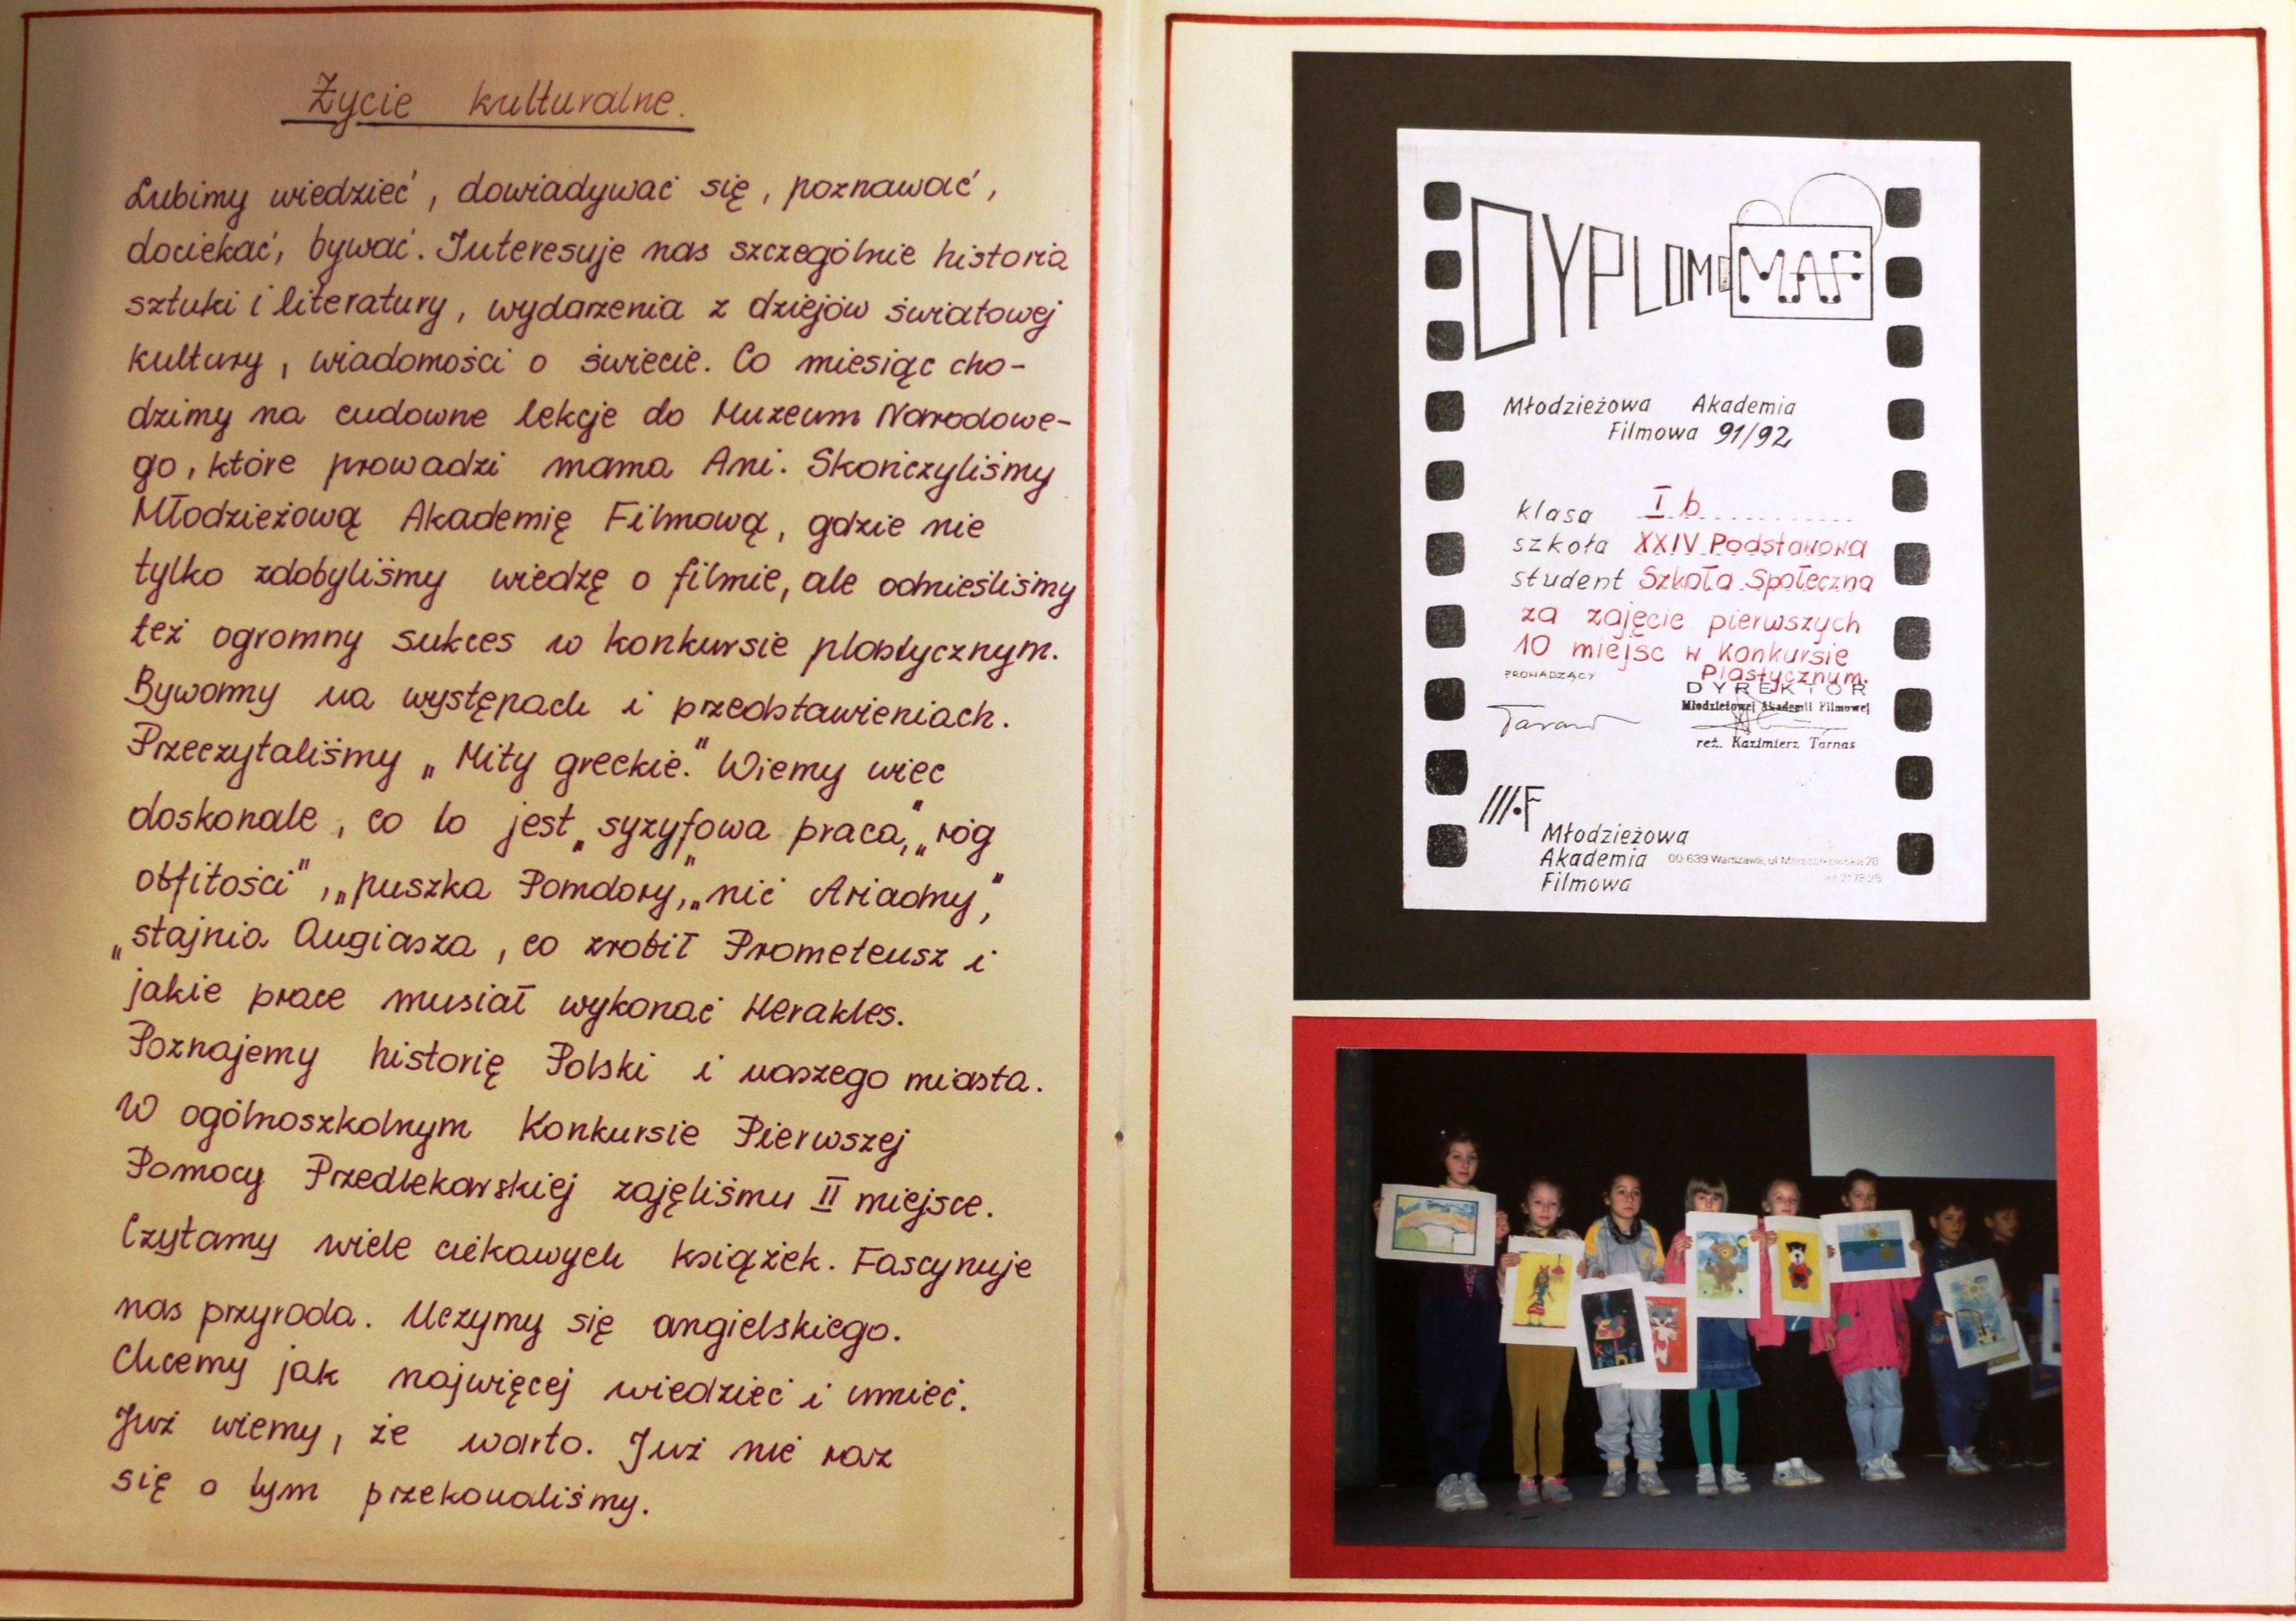 Życie kulturalne.
Lubimy wiedzieć, dowiadywać się, poznawać,
dociekać, bywać. Interesuje nas szczególnie historia
sztuki i literatury, wydarzenia z dziejów światowej
kultury, wiadomości o świecie. Co miesiąc cho-
dzimy na cudowne lekcje do Muzeum Narodowe-
go, które prowadzi mama Ani. Skończyliśmy
Młodzieżową Akademię Filmową, gdzie nie
tylko zdobyliśmy wiedzę o filmie, ale odnieśliśmy
też ogromny sukces w konkursie plastycznym.
Bywamy na występach i przedstawieniach.
Przeczytaliśmy „Mity greckie." Wiemy wiec
doskonale, co to jest „syzyfowa praca", „róg
obfitości", „puszka Pandory", „nić Ariadny",
„stajnia Augiasza, co zrobił Prometeusz i
jakie prace musiał wykonać Herakles.
Poznajemy historię Polski i naszego miasta.
W ogólnoszkolnym Konkursie Pierwszej
Pomocy Przedlekarskiej zajęliśmy II miejsce.
Czytamy wiele ciekawych książek. Fascynuje
nas przyroda. Uczymy się angielskiego.
Chcemy jak najwięcej wiedzieć i umieć.
Już wiemy, że warto. Już nie raz
się o tym przekonaliśmy.
DYPLOM MAF
Młodzieżowa Akademia
Filmowa 91/92
klasa I b
szkoła XXIV Podstawowa
student Szkoła Społeczna
za zajęcie pierwszych
10 miejsc w Konkursie
Plastycznym.
PROWADZĄCY
DYREKTOR
Młodzieżowej Akademii Filmowej
reż. Kazimierz Tarnas
Młodzieżowa
Akademia
Filmowa
00-639 Warszawa, ul Marszałkowska 28